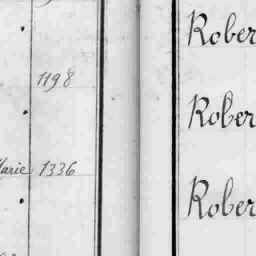 Rober
1198
Rober
Marie 1336
Rober